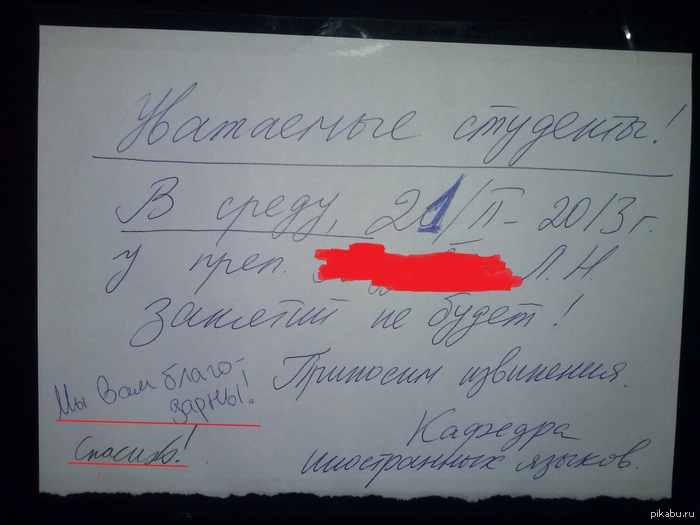 Уважаемые студенты!
В среду, 21/II- 2013г.
у преп. Л.Н.
Занятий не будет!
Приносим извинения.
Кафедра
иностранных языков.
Мы Вам благо-
дарны!
Спасибо!
pikabu.ru